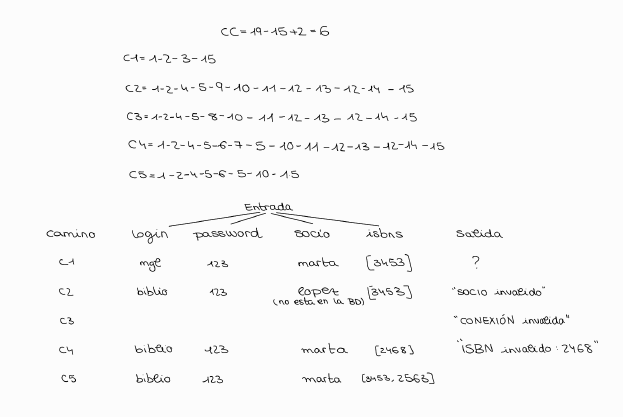 CC = 19-15+2 = 6
C1= 1-2-3-15
C2= 1-2-4-5-9-10-11-12-13-12-14-15
C3=1-2-4-5-8-10-11-12-13-12-14-15
C4=1-2-4-5-6-7-5-10-11-12-13-12-14-15
C5=1-2-4-5-6-5-10-15
Entrada
camino login password socio isbns Salida
C1 mgl 123 marta [3453] ?
C2 biblio 123 lopez [3453] "SOCIO invalido"
(no esta en la BD)
C3 "CONEXIÓN invalida"
C4 biblio 123 marta [2468] "ISBN invalido: 2468"
C5 biblio 123 marta [3453, 2563]